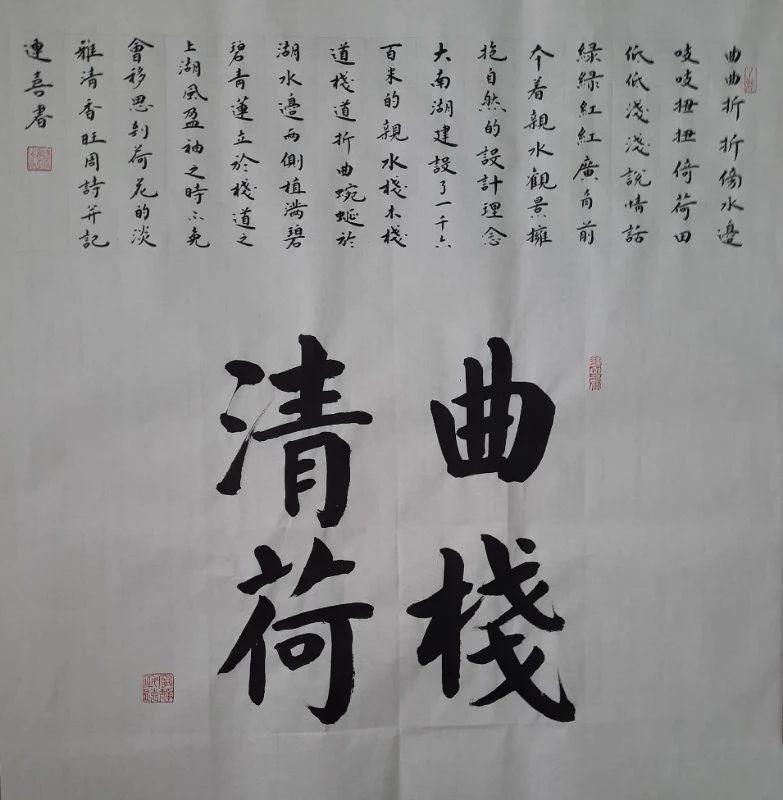 曲曲折折傍水邊
吱吱扭扭倚荷田
低低淺淺說情話
綠綠紅紅廣角前
本着親水觀景擁
抱自然的設計理念
大南湖建設了一千六
百米的親水棧木棧
道棧道折曲蜿蜒於
湖水邊兩側植滿碧
碧青蓮立於棧道之
上湖風盈袖之時不免
會移思到荷花的淡
雅清香旺周詩并記
連喜書
曲棧
清荷